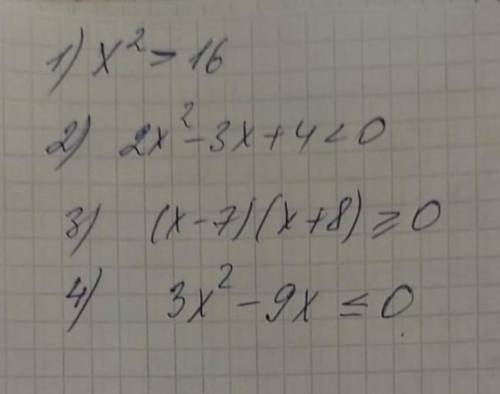 1) x² > 16
2) 2x² - 3x + 4 < 0
3) (x - 7)(x + 8) ≥ 0
4) 3x² - 9x ≤ 0